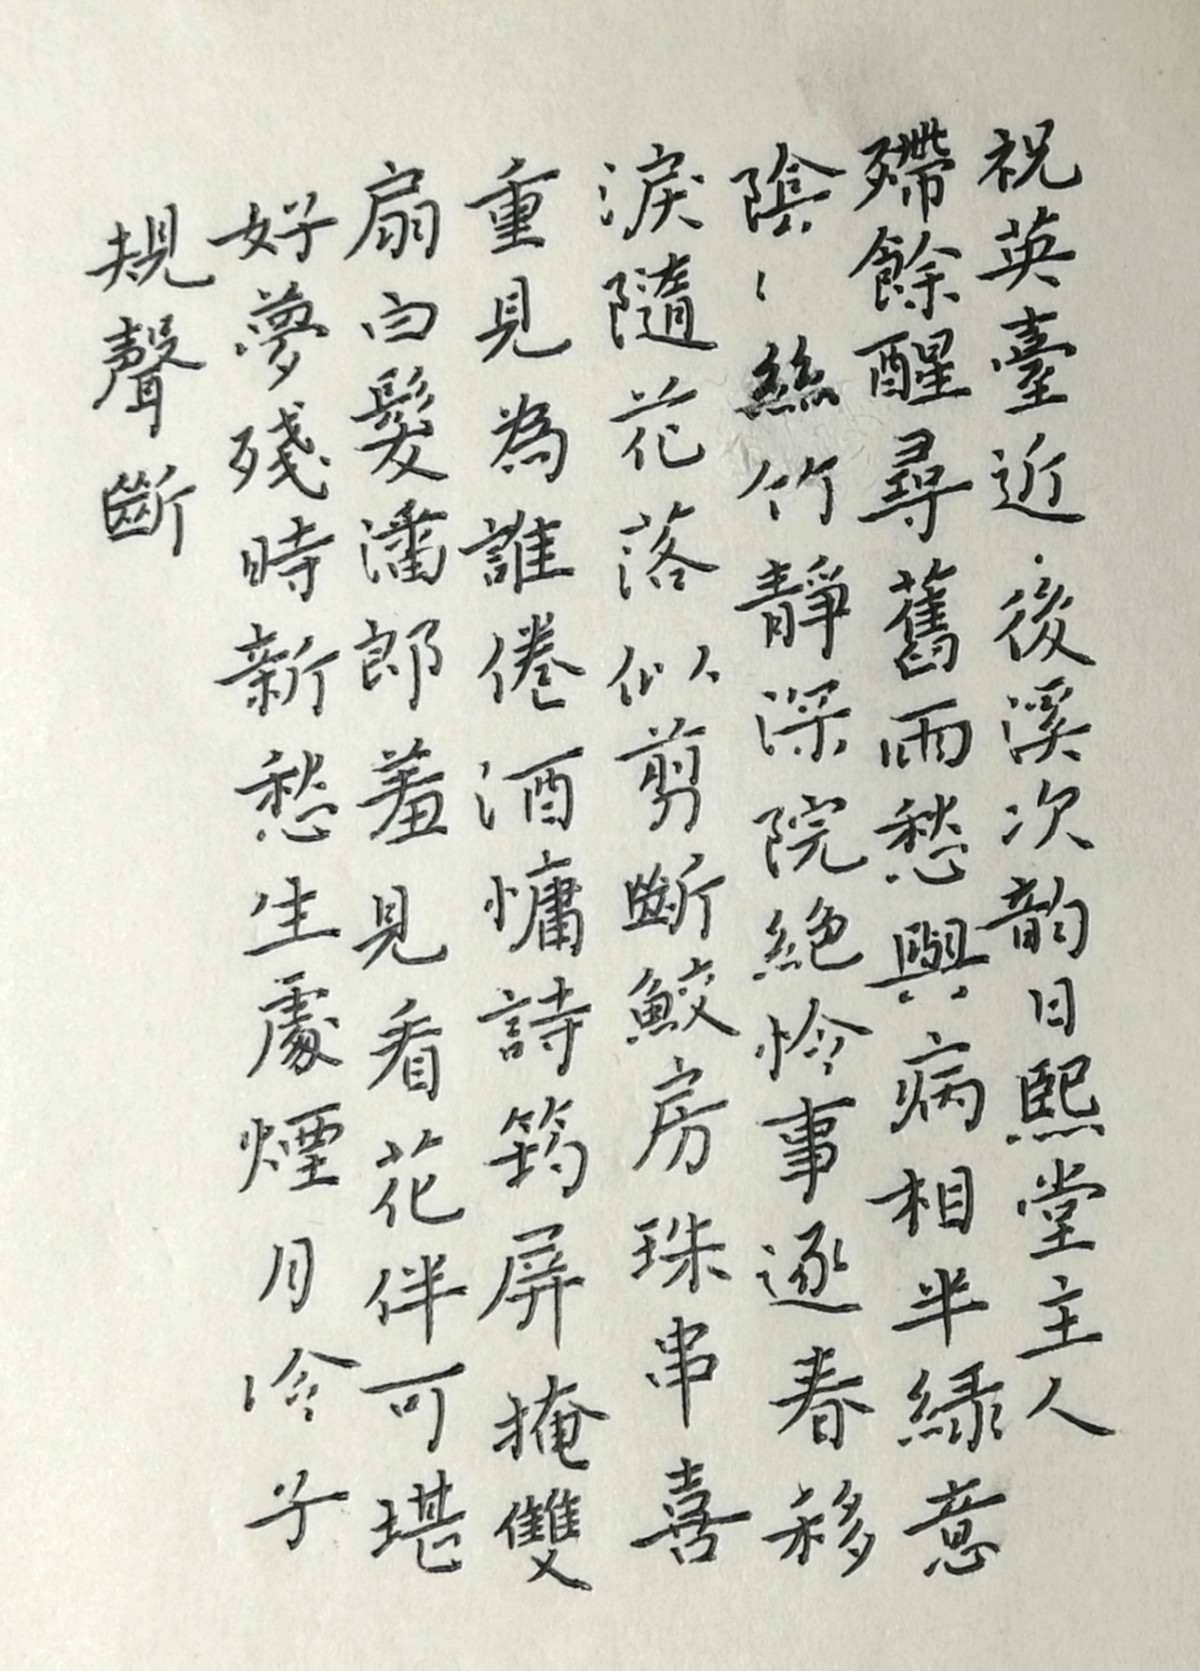 祝英臺近·後溪次韵日熙堂主人
殢餘醒尋舊雨愁與病相半綠意
陰、絲竹靜深院絕怜事逐春移
淚隨花落似剪斷鮫房珠串喜
重見為誰倦酒慵詩筠屏掩雙
扇白髮潘郎羞見看花伴可堪
好夢殘時新愁生處煙月冷子
規聲斷